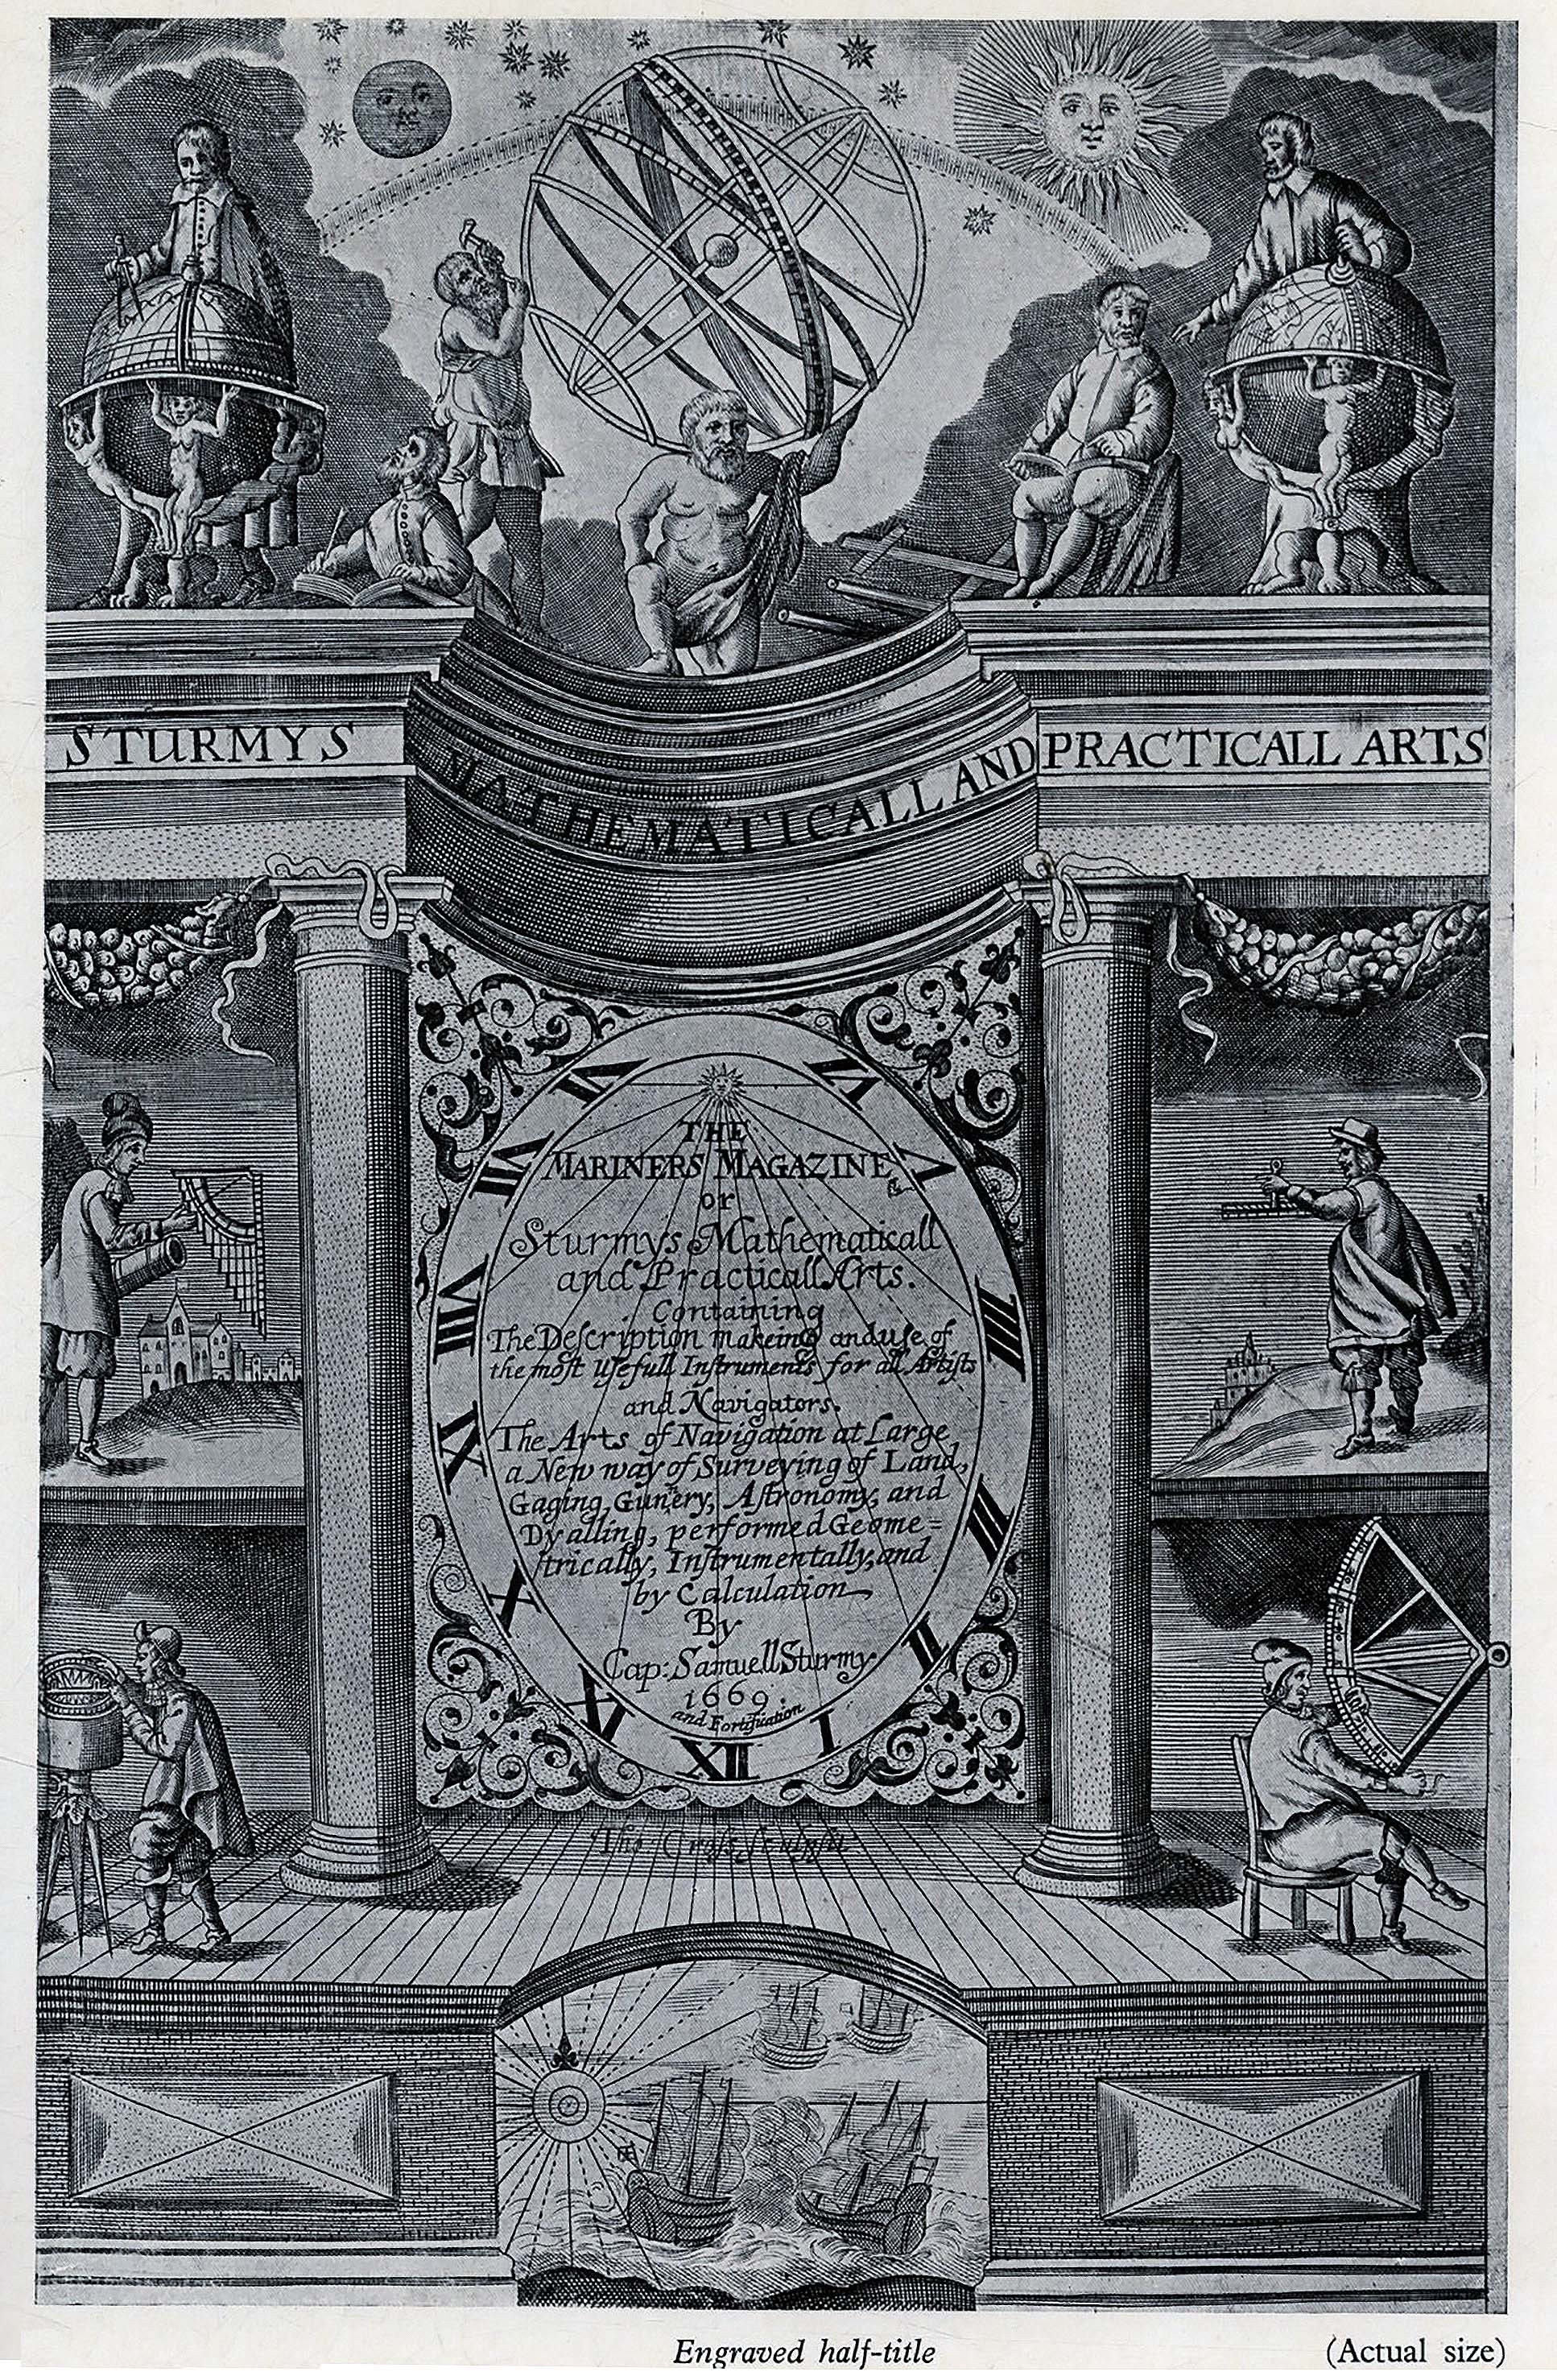 STURMYS MATHEMATICALL AND PRACTICALL ARTS
VI VI
VII V
VIII IIII
IX III
X II
XI I
XII
THE
MARINERS MAGAZINE
or
Sturmys Mathematicall
and Practicall Arts.
Containing
The Deſcription makeing and uſe of
the moſt Uſefull Inſtruments for all Artiſts
and Navigators.
The Arts of Navigation at Large
a New way of Surveying of Land,
Gaging, Gunery, Aſtronomy, and
Dyalling, performed Geome=
trically, Inſtrumentally, and
by Calculation
By
Cap: Samuell Sturmy
1669.
and Fortification
Tho: Croſs Sculpsit
Engraved half-title
(Actual size)